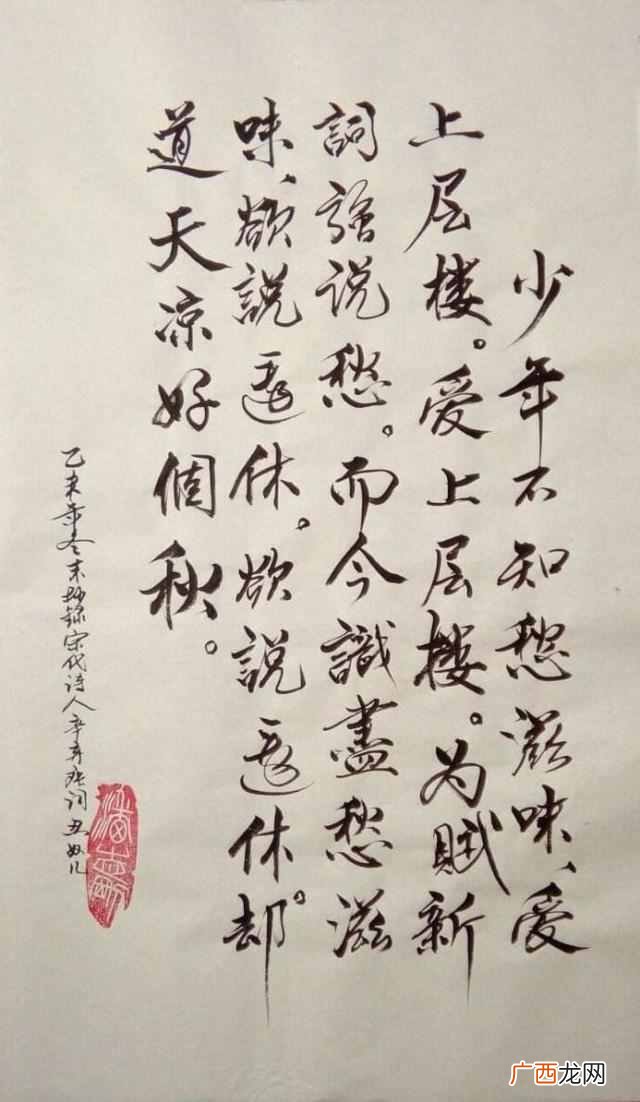 少年不知愁滋味、爱
上层楼。爱上层楼。为赋新
詞说愁。而今識盡愁滋
味、欲說還休。欲說還休。却
道天凉好個秋。
乙未年冬末抄錄宋代诗人辛弃疾词丑奴儿
广西龙网